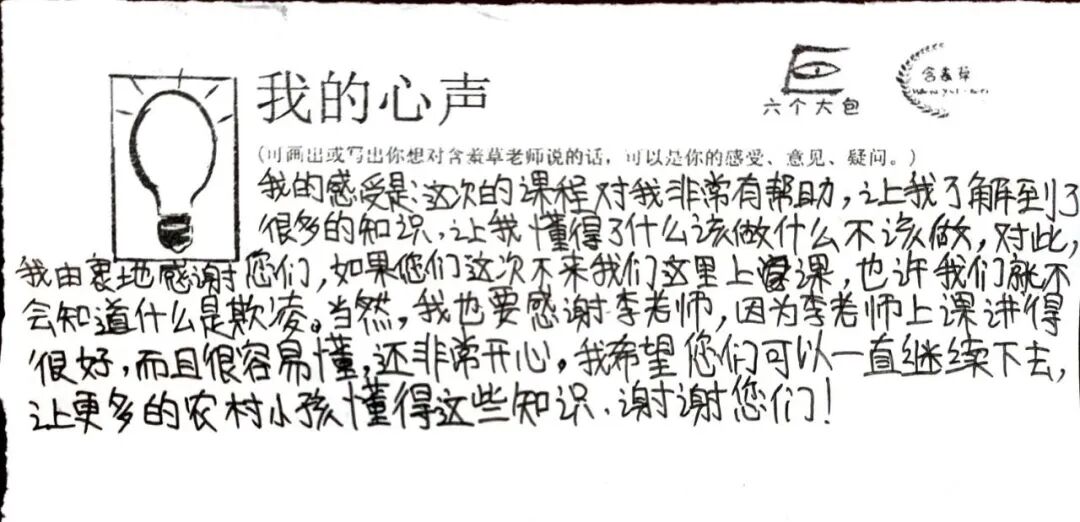 我的心声
六个大包
含羞草
(可画出或写出你想对含羞草老师说的话，可以是你的感受、意见、疑问。)
我的感受是:这次的课程对我非常有帮助,让我了解到了
很多的知识,让我懂得了什么该做什么不该做,对此,
我由衷地感谢您们,如果您们这次不来我们这里上课,也许我们就不
会知道什么是欺凌。当然,我也要感谢李老师,因为李老师上课讲得
很好,而且很容易懂,还非常开心。我希望您们可以一直继续下去,
让更多的农村小孩懂得这些知识.谢谢您们!